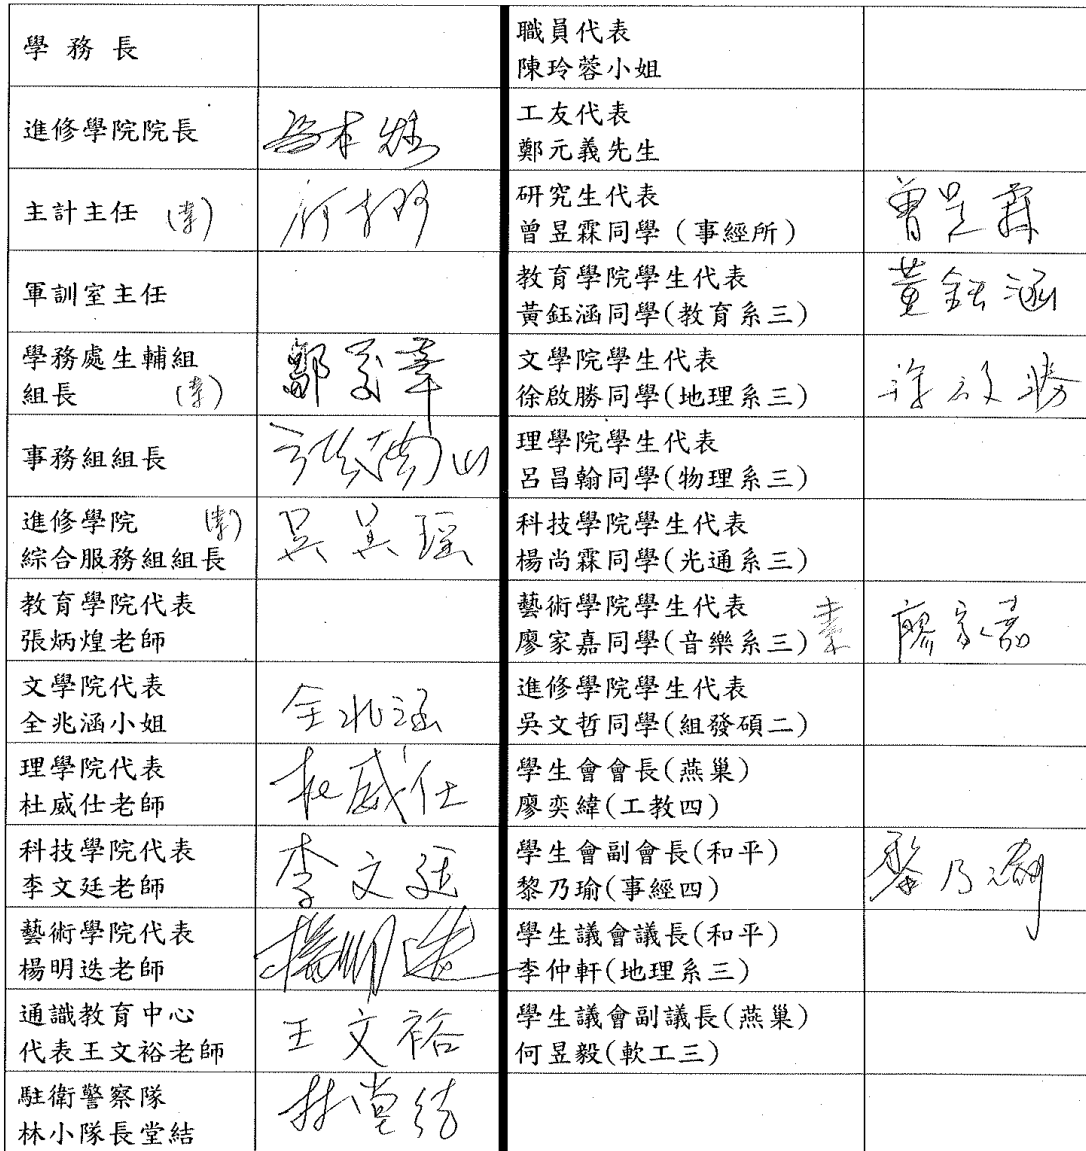 學務長
進修學院院長
主計主任 (素)
軍訓室主任
學務處生輔組
組長 (素)
事務組組長
進修學院 (素)
綜合服務組組長
教育學院代表
張炳煌老師
文學院代表
全兆涵小姐 全兆涵
理學院代表
杜威仕老師 杜威仕
科技學院代表
李文廷老師 李文廷
藝術學院代表
楊明迭老師 楊明迭
通識教育中心
代表王文裕老師 王文裕
駐衛警察隊
林小隊長堂結 林堂結
職員代表
陳玲蓉小姐
工友代表
鄭元義先生
研究生代表
曾昱霖同學(事經所) 曾昱霖
教育學院學生代表
黃鈺涵同學(教育系三) 黃鈺涵
文學院學生代表
徐啟勝同學(地理系三) 徐啟勝
理學院學生代表
呂昌翰同學(物理系三)
科技學院學生代表
楊尚霖同學(光通系三)
藝術學院學生代表
廖家嘉同學(音樂系三) 素 廖家嘉
進修學院學生代表
吳文哲同學(組發碩二)
學生會會長(燕巢)
廖奕緯(工教四)
學生會副會長(和平)
黎乃瑜(事經四) 黎乃瑜
學生議會議長(和平)
李仲軒(地理系三)
學生議會副議長(燕巢)
何昱毅(軟工三)